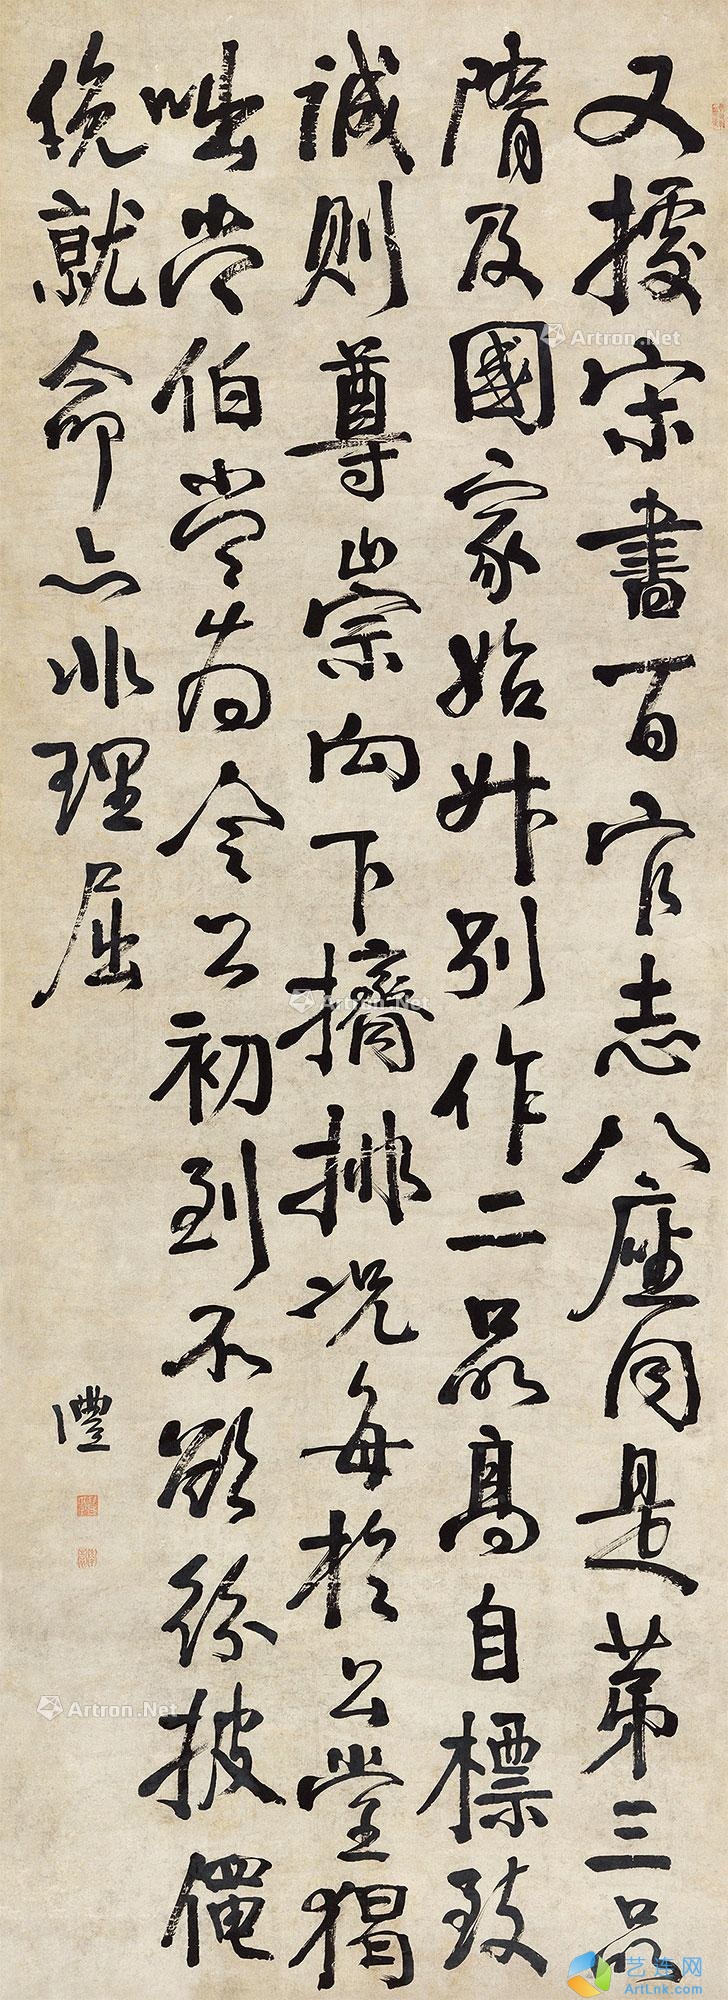 又據宋書百官志八座同是第三品
隋及國家始升別作二品高自標致
誠則尊崇向下擠排況每於公堂猲
咄常伯當為令公初到不欲紛披僶
俛就命亦非理屈
澧
Artron.Net
Artron.Net
Artron.Net
艺连网
ArtLnk.com